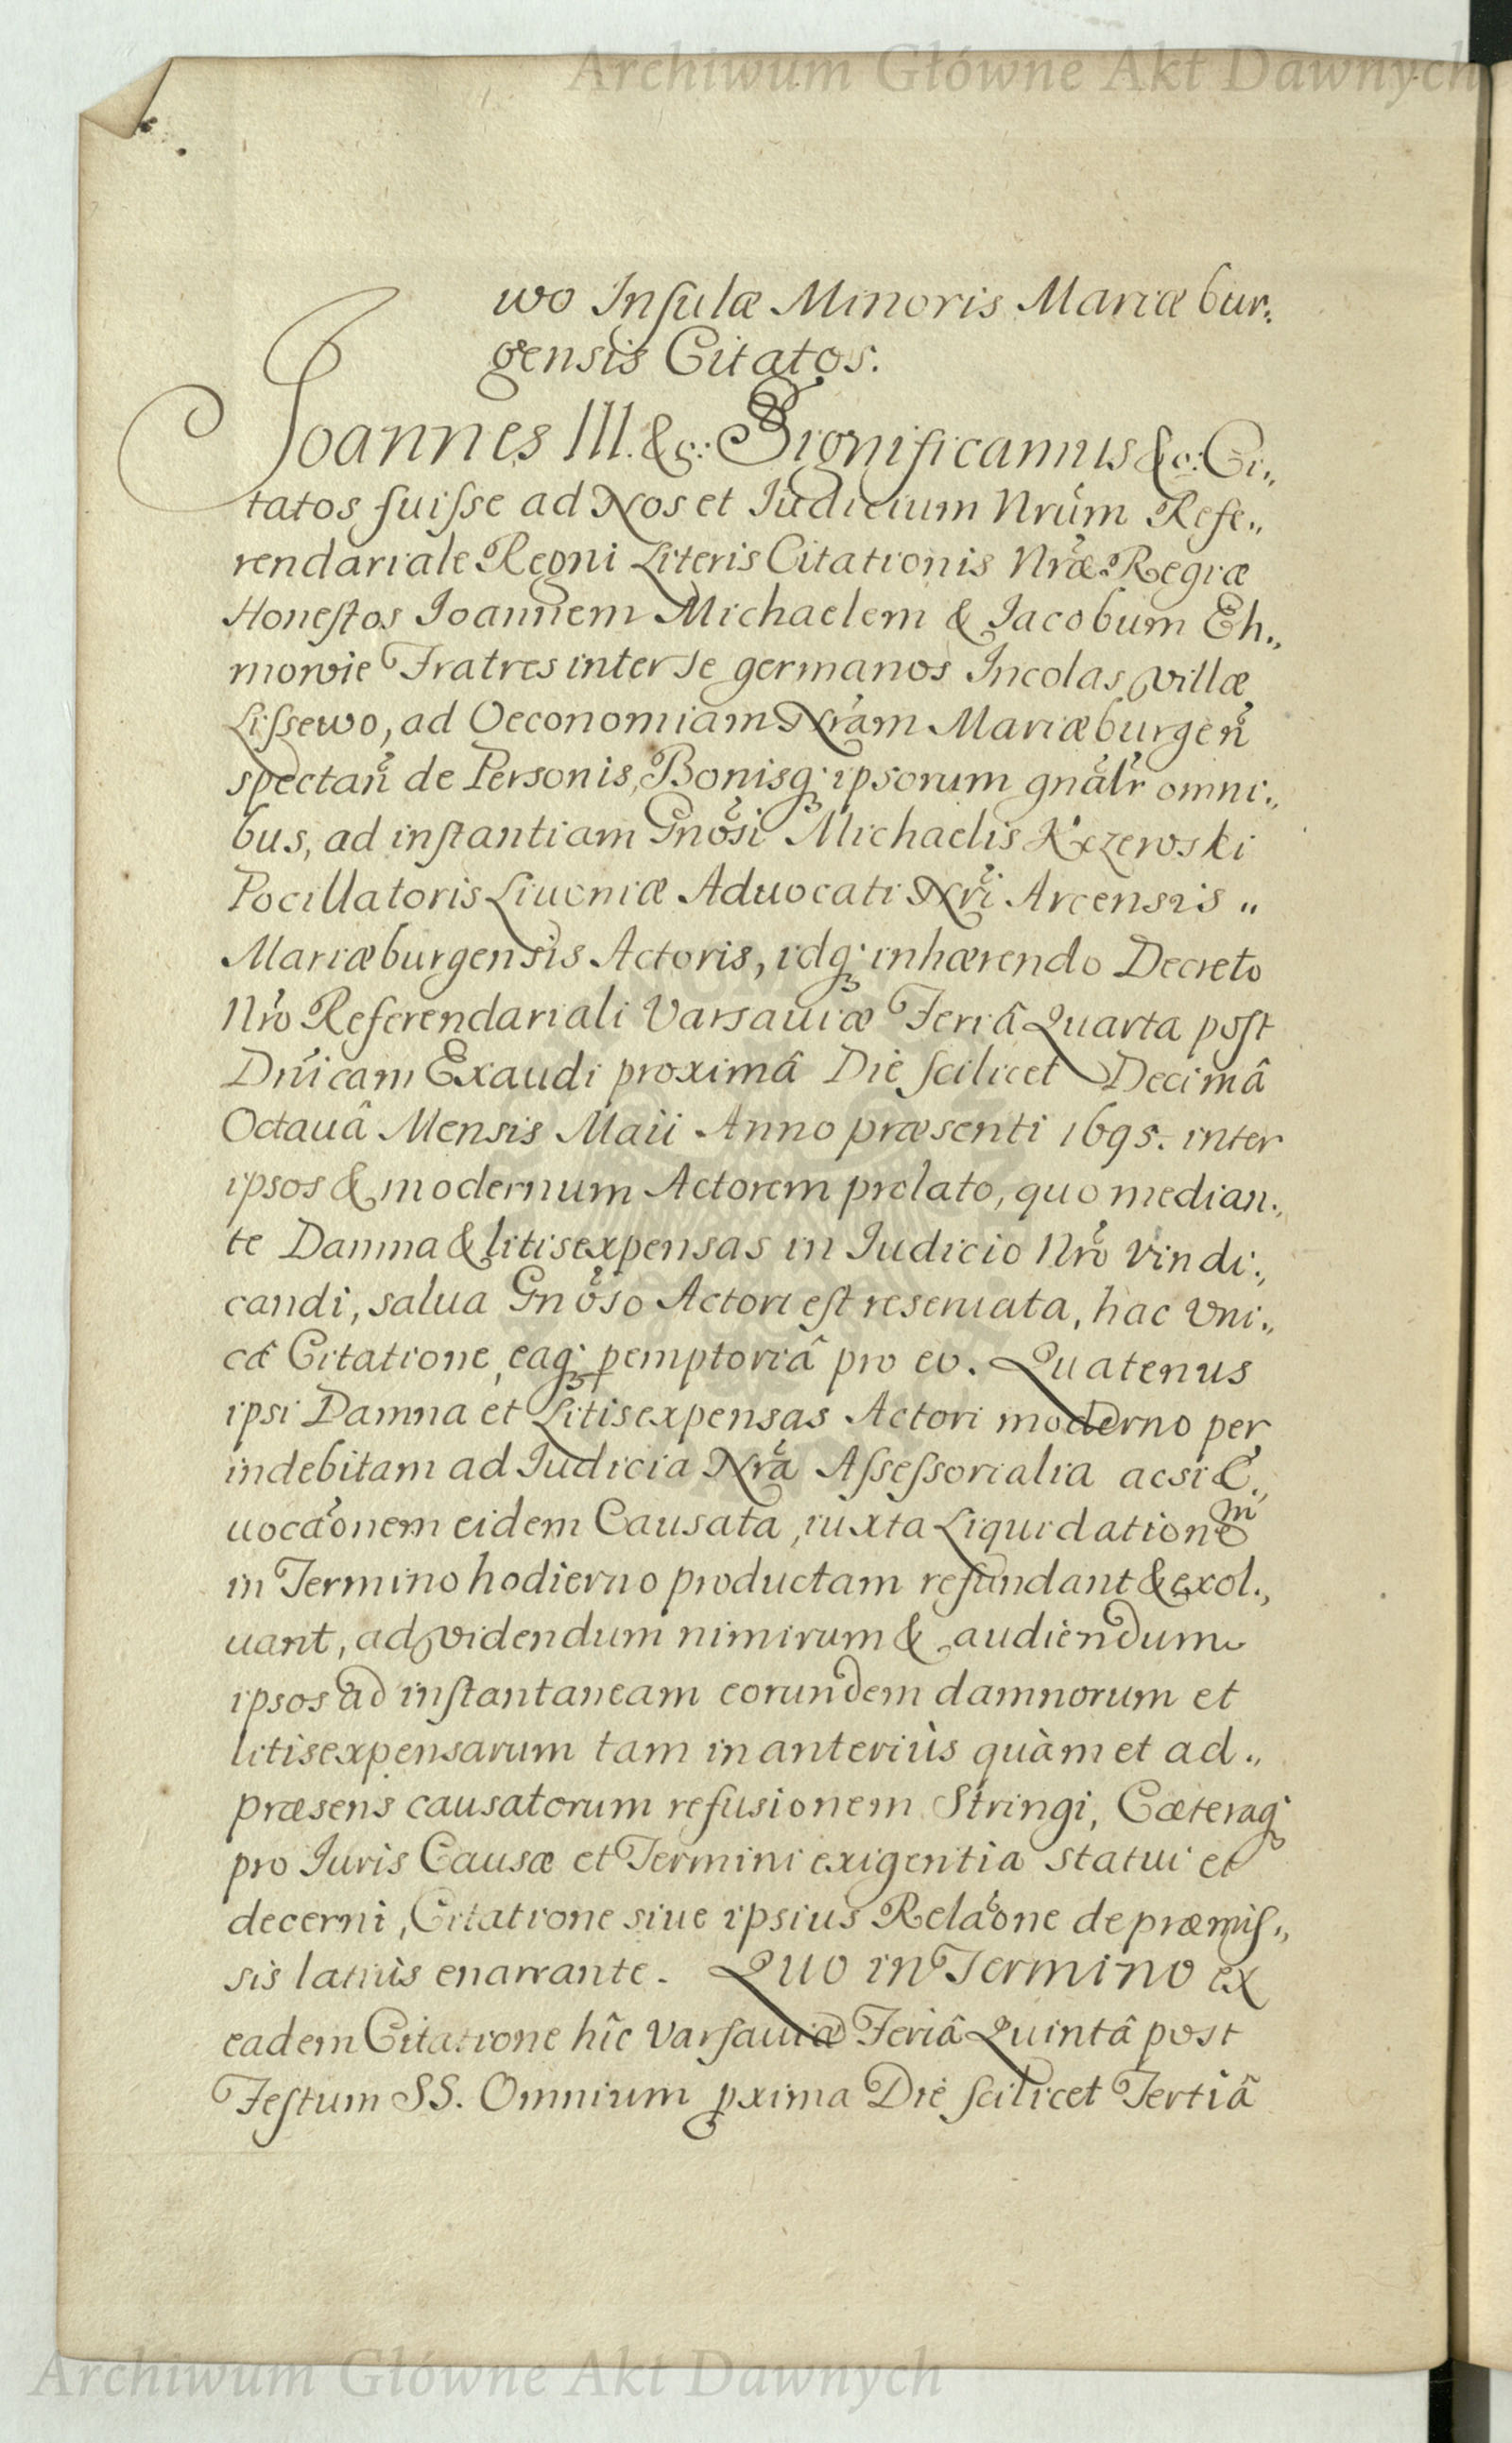 Archiwum Główne Akt Dawnych
wo Insulæ Minoris Mariæbur:
gensis Citatos.
Joannes III. &c: Significamus &c: Ci„
tatos fuisse ad Nos et Iudicium Nrúm Refe„
rendariale Regni Literis Citationis Nræ Regiæ
Honestos Ioannem Michaelem & Iacobum Eh„
mowie Fratres inter se germanos Incolas villæ
Lissewo, ad Oeconomiam Nram Mariæburgen
spectan de Personis, Bonisq; ipsorum gnalr omni„
bus, ad instantiam Gnosi Michaelis Kczewski
Pocillatoris Livoniæ Aduocati Nri Arcensis „
Mariæburgensis Actoris, idq; inhærendo Decreto
Nro Referendariali Varsauiæ Feriâ Quarta post
Dnicam Exaudi proximâ Die scilicet Decimâ
Octauâ Mensis Maii Anno præsenti 1695. inter
ipsos & modernum Actorem prolato, quo median„
te Damna & litisexpensas in Iudicio Nro vindi„
candi, salua Gnoso Actori est reseruata, hac Vni„
câ Citatione, eaq; pemptoriâ pro eo. Quatenus
ipsi Damna et Litisexpensas Actori moderno per
indebitam ad Iudicia Nra Assessorialia acsi E„
uocaonem eidem Causata, iuxta Liquidationem
in Termino hodierno productam refundant & exol„
uant, ad videndum nimirum & audiendum
ipsos ad instantaneam eorundem damnorum et
litisexpensarum tam in anteriùs quàm et ad„
præsens causatorum refusionem stringi, Cæteraq;
pro Iuris Causæ et Termini exigentia statui et
decerni, Citatione siue ipsius Relaone de præmis„
sis latiùs enarrante. Quo in Termino ex
eadem Citatione hîc Varsauiæ Feriâ Quintâ post
Festum SS. Omnium pxima Die scilicet Tertiâ
Archiwum Główne Akt Dawnych